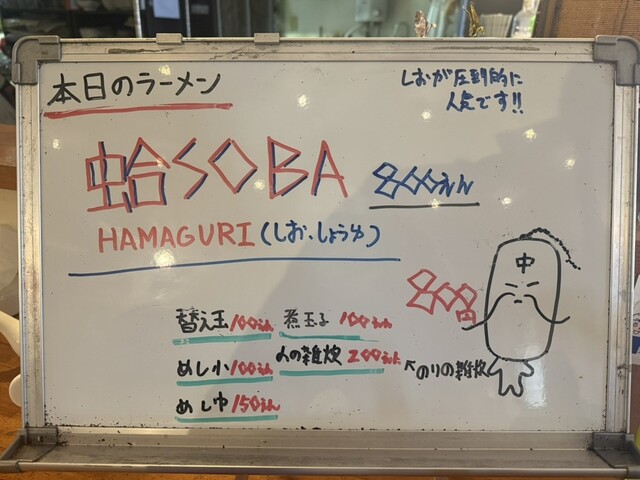 本日のラーメン
しおが圧倒的に
人気です!!
蛤SOBA 800えん
HAMAGURI (しお・しょうゆ)
中
800円
替え玉 100えん 煮玉子 100えん
めし小 100えん 人の雑炊 200えん
めし中 150えん
↖のりの雑炊